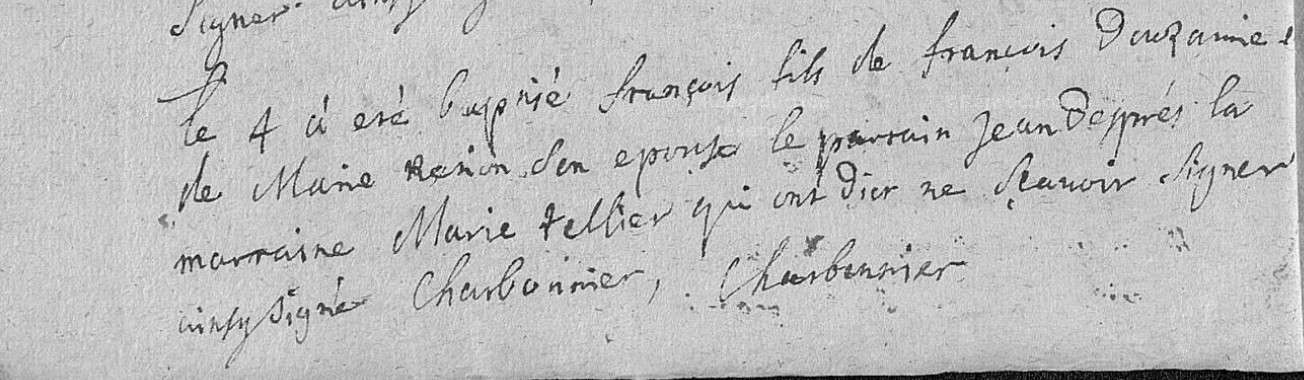 signer ainsy
le 4 a eté baptisé françois fils de francois Douzamie e
de Marie son epouse le parrain Jean Desprès la
marraine Marie tellier qui ont dict ne sçauoir signer
ainsy signé Charbonnier, Charbonnier